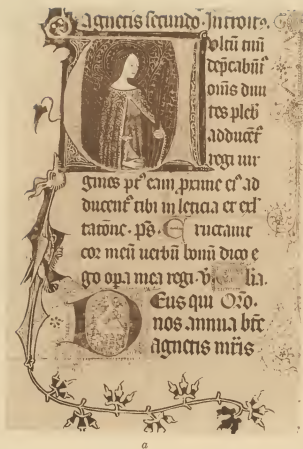 agnetis secundo. Introit9.
Vultū tuū
dep̄cabūt᷑
om̄s diui
tes pleb̄
adducēt᷑
regi uir
gines pt9 eam proxime ei9 ad
ducent᷑ tibi in leticia et exl᷑
tatōne. ps̄. Eructauit
cor meū uerbū bonū dico e
go opa mea regi.
Deus qui Oro.
nos annua bt̄e
agnetis mr̄is
a